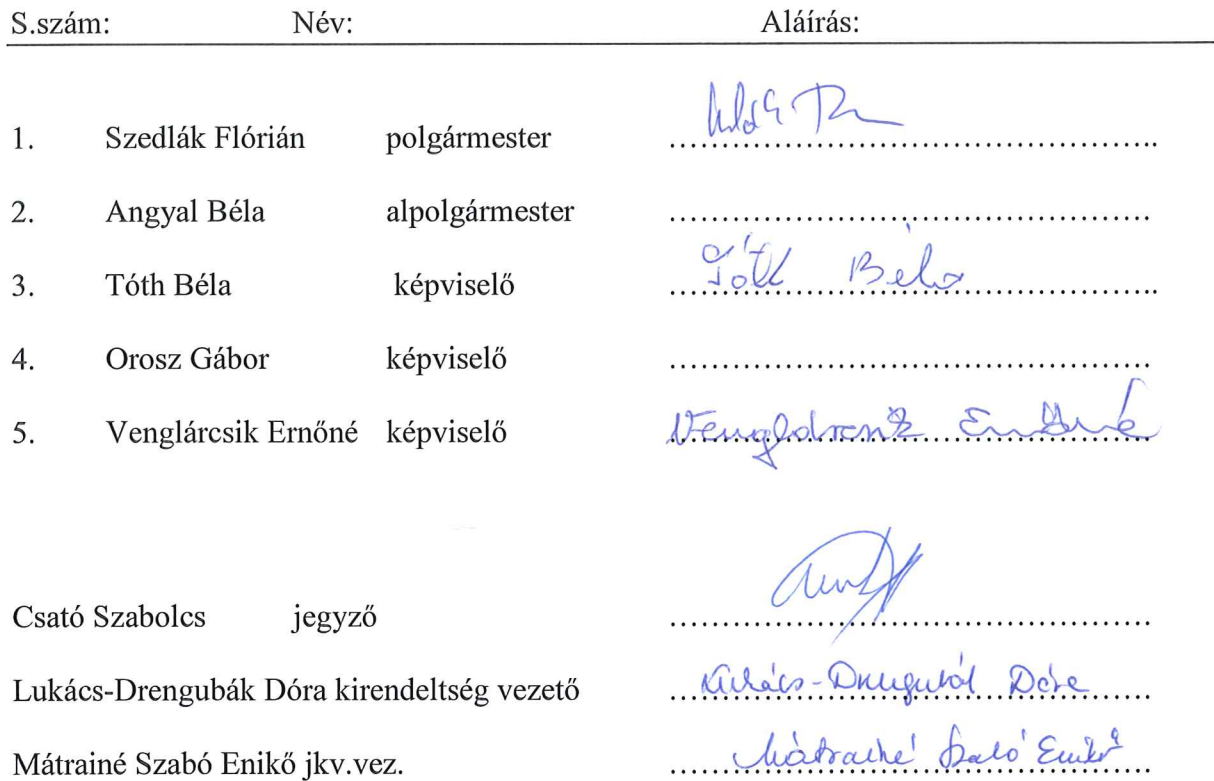 S.szám: Név: Aláírás:
1. Szedlák Flórián polgármester ……………………………………………..
2. Angyal Béla alpolgármester …………………………………………….
3. Tóth Béla képviselő Tóth Béla ……………………………………………..
4. Orosz Gábor képviselő …………………………………………….
5. Venglárcsik Ernőné képviselő Venglárcsik Ernőné …………………………………………….
Csató Szabolcs jegyző …………………………………………….
Lukács-Drengubák Dóra kirendeltség vezető Lukács-Drengubák Dóra …………………………………………….
Mátrainé Szabó Enikő jkv.vez. Mátrainé Szabó Enikő …………………………………………….